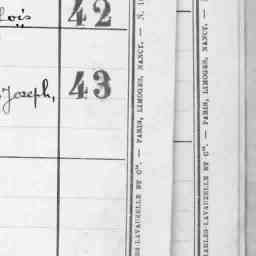 42
Joseph,
43
CHARLES-LAVAUZELLE ET Cie. — PARIS, LIMOGES, NANCY. — N.
CHARLES-LAVAUZELLE ET Cie. — PARIS, LIMOGES, NANCY. —